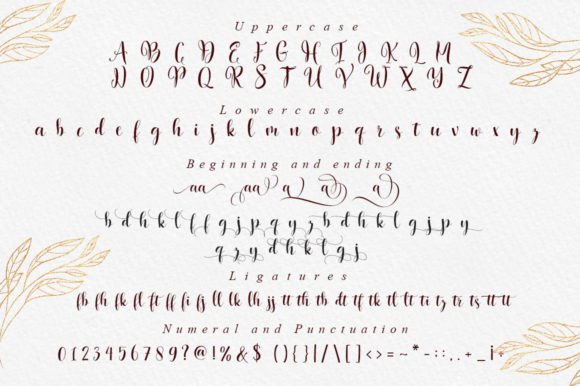 Uppercase
A B C D E F G H I J K L M
N O P Q R S T U V W X Y Z
Lowercase
a b c d e f g h i j k l m n o p q r s t u v w x y z
Beginning and ending
aa aa a a a
b d h k l f f g j p q y ; b d h k l g j p y
q z y d h k l g j
Ligatures
fb fh fk fl ft ff fi fj ll lk lh jj tt th tb dt tf tk tl tt ti tz tr ts tt tt
Numeral and Punctuation
0123456789?@!%&$ (){}[/\[]<>=~*-:;,.+_i+